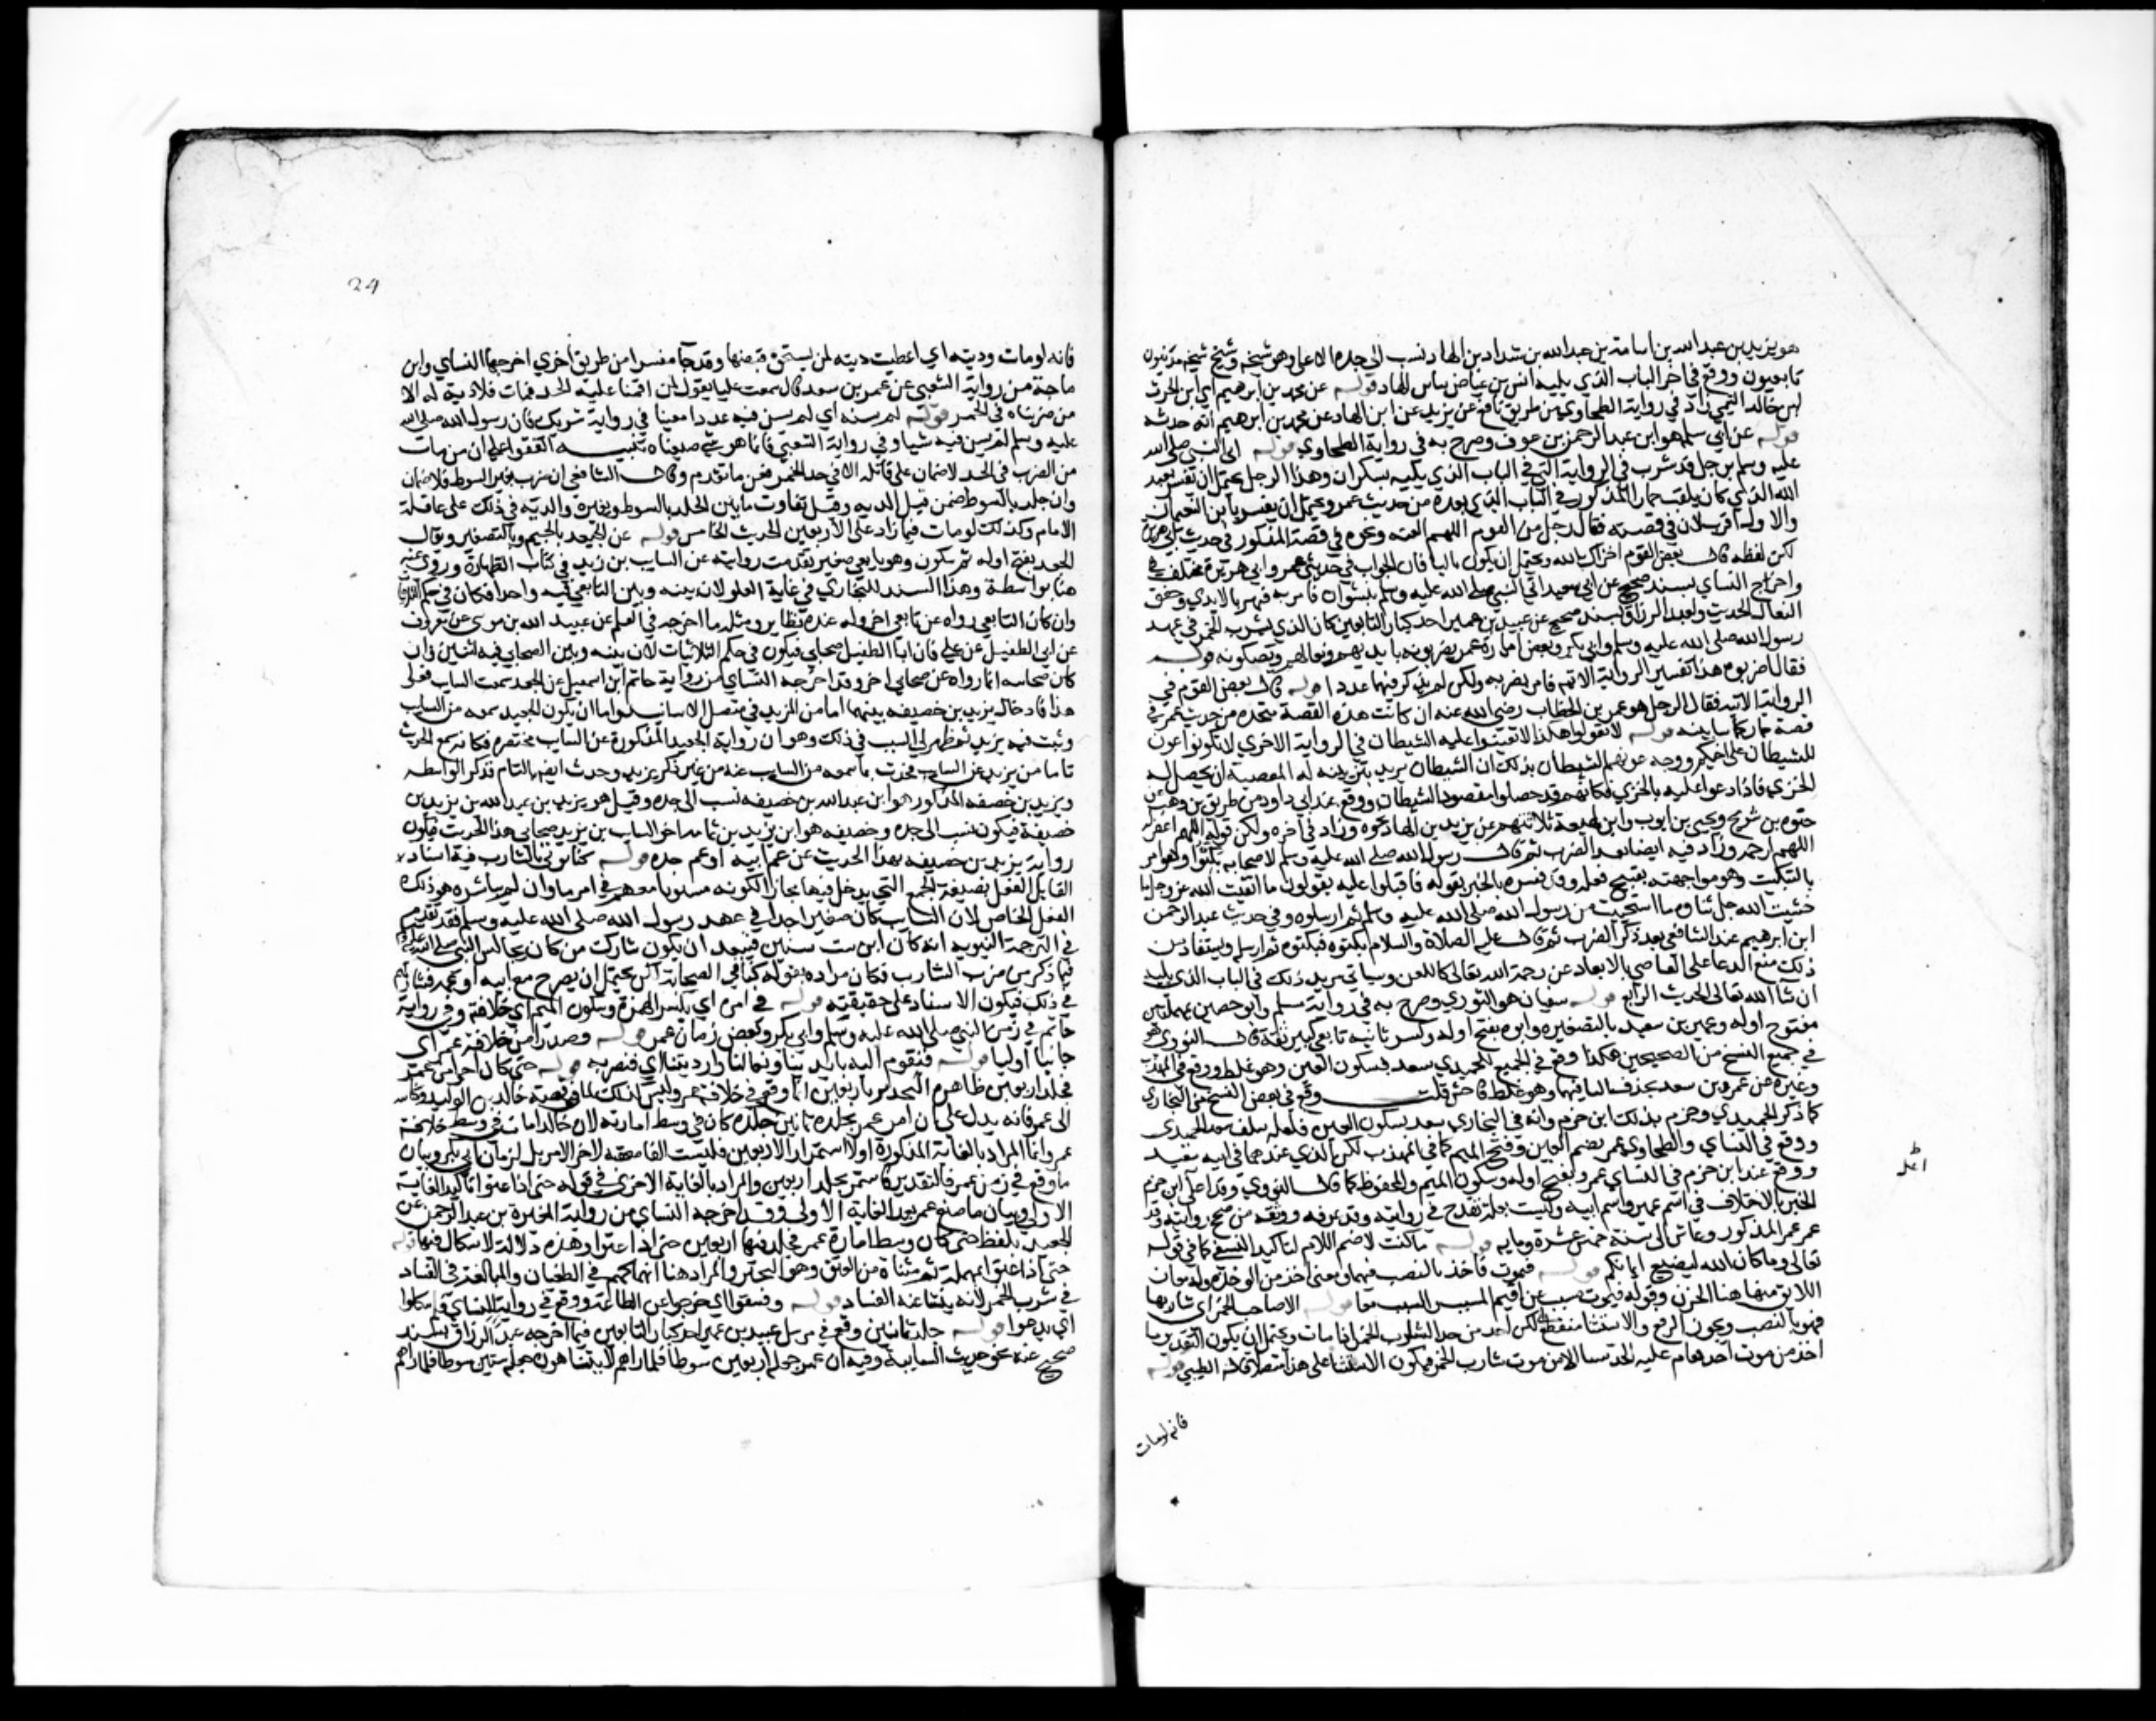 هو يزيد بن عبد الله بن اسامة بن عبد الله بن شداد بن الهاد نسب الى جده الاعلى وهو شيخه وشيخ شيخه مدنيون
تابعيون ووقع في اخر الباب الذي يليه انس بن عياض بن الهاد قوله عن محمد بن ابرهيم اي ابن الحرث
ابن خالد التيمي زاد في رواية الطحاوي من طريق نافع عن يزيد عن ابن الهاد عن محمد بن ابرهيم انه حدثه
قوله عن ابي سلمة هو ابن عبد الرحمن بن عوف وصرح به في رواية الطحاوي قوله اتى النبي صلى الله
عليه وسلم برجل قد شرب في الرواية التي في الباب الذي يليه بسكران وهذا الرجل يحتمل ان يفسر بعبد
الله الذي كان يلقب حمارا المذكور في الباب الذي بعده من حديث عمر ويحتمل ان يفسر بابن النعيمان
والاول اقرب لان في قصته فقال رجل من القوم اللهم العنه ونحوه في قصة المذكور في حديث ابي هريرة
لكن لفظه قال بعض القوم اخزاك الله ويحتمل ان يكون ثالثا فان الجواب في حديثي عمر وابي هريرة مختلف
واخرج النساي بسند صحيح عن ابي سعيد اتي النبي صلى الله عليه وسلم بنشوان فامر به فنهز بالايدي وخفق
النعال الحديث ولعبد الرزاق بسند صحيح عن عبيد بن عمير احد كبار التابعين كان الذي يشرب الخمر في عهد
رسول الله صلى الله عليه وسلم وابي بكر وبعض امارة عمر يضربونه بايديهم ونعالهم ويصكونه قوله
فقال اضربوه هذا تفسير الرواية الاتية فامر بضربه ولكن لم يذكر فيهما عددا قوله قال بعض القوم في
الرواية الاتية فقال الرجل هو عمر بن الخطاب رضي الله عنه ان كانت هذه القصة متحدة مع حديث عمر في
قصة حمار كما سابينه قوله لا تقولوا هكذا لا تعينوا عليه الشيطان في الرواية الاخرى لا تكونوا عون
للشيطان على اخيكم ووجه عونهم الشيطان بذلك ان الشيطان يريد بتزيينه له المعصية ان يحصل له
الخزي فاذا دعوا عليه بالخزي فكانهم قد حصلوا مقصود الشيطان ووقع عند ابي داود من طريق بن وهب عن
حيوة بن شريح ويحيى بن ايوب وابن لهيعة ثلاثتهم عن يزيد بن الهاد نحوه وزاد في اخره ولكن قولوا اللهم اغفر له
اللهم ارحمه وزاد فيه ايضا بعد الضرب ثم قال رسول الله صلى الله عليه وسلم لاصحابه بكتوه وهو امر
بالتبكيت وهو مواجهته بقبيح فعله وقد فسره بالخبر بقوله فاقبلوا عليه يقولون ما اتقيت الله عز وجل ما
خشيت الله جل ثناوه ما استحييت من رسول الله صلى الله عليه وسلم ثم ارسلوه وفي حديث عبد الرحمن
ابن ابرهيم عند الشافعي بعد ذكر الضرب ثم قال عليه الصلاة والسلام بكتوه فبكتوه ثم ارسله ويستفاد من
ذلك منع الدعا على العاصي بالابعاد عن رحمة الله تعالى كاللعن وسياتي مزيد ذلك في الباب الذي يليه
ان شا الله تعالى الحديث الرابع قوله سفيان هو الثوري وصرح به في رواية مسلم وابو حصين بمهملتين
مفتوح اوله وعمير بن سعيد بالتصغير وابوه بفتح اوله وكسر ثانيه تابعي كبير ثقة قال النووي هو
في جميع النسخ من الصحيحين هكذا ووقع في الجمع للحميدي سعد بسكون العين وهو غلط ووقع في المهذب
وغيره عن عمر بن سعد بحذف اليا فيهما وهو غلط فاحش قلت ووقع في بعض النسخ من البخاري
كما ذكر الحميدي وجزم بذلك ابن حزم وانه في البخاري سعد بسكون العين فلعله سلف الحميدي
ووقع في النساي والطحاوي عمر بضم العين وفتح الميم كما في المهذب لكن الذي عندهما في ابيه سعيد
ووقع عند ابن حزم في النساي عمرو بفتح اوله وسكون الميم والمحفوظ كما قال النووي وقد اعل ابن حزم
الخبر بالاختلاف في اسم عمير واسم ابيه وليست بعلة تقدح في روايته وقد عرفه ووثقه من صحح روايته وقد
عمر عمير المذكور وعاش الى سنة خمس عشرة وماية قوله ما كنت لاقيم اللام لتاكيد النفي كما في قوله
تعالى وما كان الله ليضيع ايمانكم قوله فيموت فاجد بالنصب فيهما ومعنى اجد من الوجد وله معان
اللائق منها هنا الحزن وقوله فيموت مسبب عن اقيم قوله الا صاحب الخمر اي شاربها
فهو بالنصب ويجوز الرفع والاستثنا منقطع اي لكن اجد من حد شارب الخمر اذا مات ويحتمل ان يكون التقدير ما
اجد من موت احد يقام عليه الحد شيا الا من موت شارب الخمر فيكون الاستثنا على هذا متصلا قاله الطيبي قوله
فانه لو مات
24
فانه لو مات وديته اي اعطيت ديته لمن يستحق قبضها وقد جا مفسرا من طريق اخرى اخرجها النساي وابن
ماجة من رواية الشعبي عن عمير بن سعيد قال سمعت عليا يقول من اقمنا عليه الحد فمات فلا دية له الا
من ضربناه في الخمر قوله لم يسنه اي لم يسن فيه عددا معينا في رواية شريك فان رسول الله صلى الله
عليه وسلم لم يسن فيه شيا وفي رواية الشعبي فانما هو شي صنعناه تنبيه اتفقوا على ان من مات
من الضرب في الحد لا ضمان على قاتله الا في حد الخمر فعن علي ما تقدم وقال الشافعي ان ضرب بغير السوط فلا ضمان
وان جلد بالسوط ضمن قيل الدية وقيل قدر تفاوت ما بين الجلد بالسوط وبغيره والدية في ذلك على عاقلة
الامام وكذلك لو مات فيما زاد على الاربعين الحديث الخامس قوله عن الجعيد بالجيم وبالتصغير ويقال
الجعد بفتح اوله ثم سكون وهو تابعي صغير تقدمت روايته عن السايب بن يزيد في كتاب الطهارة وروى عنه
هنا بواسطة وهذا السند للبخاري في غاية العلو لان بينه وبين التابعي فيه واحدا فكان في حكم الثلاثيات
وان كان التابعي رواه عن تابعي اخر وله عنده نظاير ومثله ما اخرجه في العلم عن عبيد الله بن موسى عن معروف
عن ابي الطفيل عن علي فان ابا الطفيل صحابي فيكون في حكم الثلاثيات لان بينه وبين الصحابي فيه اثنين وان
كان صحابيه انما رواه عن صحابي اخر وقد اخرجه النساي من رواية حاتم بن اسمعيل عن الجعد سمعت السايب فعلى
هذا فادخال يزيد بن خصيفة بينهما اما من المزيد في متصل الاسانيد واما ان يكون الجعيد سمعه من السايب
وثبت فيه يزيد ثم ظهر لي السبب في ذلك وهو ان رواية الجعيد المذكورة عن السايب مختصرة فكانه سمع الحديث
تاما من يزيد عن السايب فحدث بما سمعه من السايب عنه من غير ذكر يزيد وحدث ايضا بالتام فذكر الواسطة
ويزيد بن خصيفة المذكور هو ابن عبد الله بن خصيفة نسب الى جده وقيل هو يزيد بن عبد الله بن يزيد بن
خصيفة فيكون نسب الى جده وخصيفة هو ابن يزيد بن ثمامة اخو السايب بن يزيد صحابي هذا الحديث فيكون
رواية يزيد بن خصيفة لهذا الحديث عن عم ابيه او عم جده قوله كنا نؤتى بالشارب فيه اسناد
القايل الفعل بصيغة الجمع التي يدخل فيها مجازا لكونه مستويا معهم في امر ما وان لم يباشر هو ذلك
الفعل الخاص لان السايب كان صغيرا جدا في عهد رسول الله صلى الله عليه وسلم فقد تقدم
في الترجمة النبوية انه كان ابن ست سنين فيبعد ان يكون شارك من كان يجالس النبي صلى الله عليه وسلم
فيما ذكر من ضرب الشارب فكان مراده بقوله كنا اي الصحابة لكن يحتمل ان يحضر مع ابيه او عمه فيشاركهم
في ذلك فيكون الاسناد على حقيقته قوله في امرة اي بكسر الهمزة وسكون الميم اي خلافته وفي رواية
حاتم في زمن النبي صلى الله عليه وسلم وابي بكر وبعض زمان عمر قوله وصدرا من خلافة عمر اي
جانبا اوليا قوله فنقوم اليه بايدينا ونعالنا وارديتنا اي فنضربه قوله حتى كان اخر امرة عمر
فجلد اربعين ظاهره ان التحديد باربعين انما وقع في خلافة عمر وليس كذلك لما في قصة خالد بن الوليد وكتابه
الى عمر فانه يدل على ان امر عمر بجلده ثمانين جلدة كان في وسط امارته لان خالدا مات في وسط خلافة
عمر وانما المراد بالغاية المذكورة اولا استمرار الاربعين فليست الفا معقبة لاخر الامرة بل لزمان ابي بكر وبيان
ما وقع في زمن عمر فالتقدير فاستمر جلد اربعين والمراد بالغاية الاخرى في قوله حتى اذا عتوا تاكيد الغاية
الاولى وبيان ما صنع عمر بعد الغاية الاولى وقد اخرجه النساي من رواية المغيرة بن عبد الرحمن عن
الجعيد بلفظ حتى كان وسط امارة عمر فجلد فيها اربعين حتى اذا عتوا وهذه دلالة لا اشكال فيها قوله
حتى اذا عتوا بمهملة ثم مثناة من العتو وهو التجبر والمراد هنا انهماكهم في الطغيان والمبالغة في الفساد
في شرب الخمر لانه ينشا عنه الفساد قوله وفسقوا اي خرجوا عن الطاعة ووقع في رواية للنساي فلم ينكلوا
اي يدعوا قوله جلد ثمانين وقع في مرسل عبيد بن عمير احد كبار التابعين فيما اخرجه عبد الرزاق بسند
صحيح عنه نحو حديث السايب وفيه ان عمر جعله اربعين سوطا فلما راهم لا يتناهون جعله ستين سوطا فلما راهم